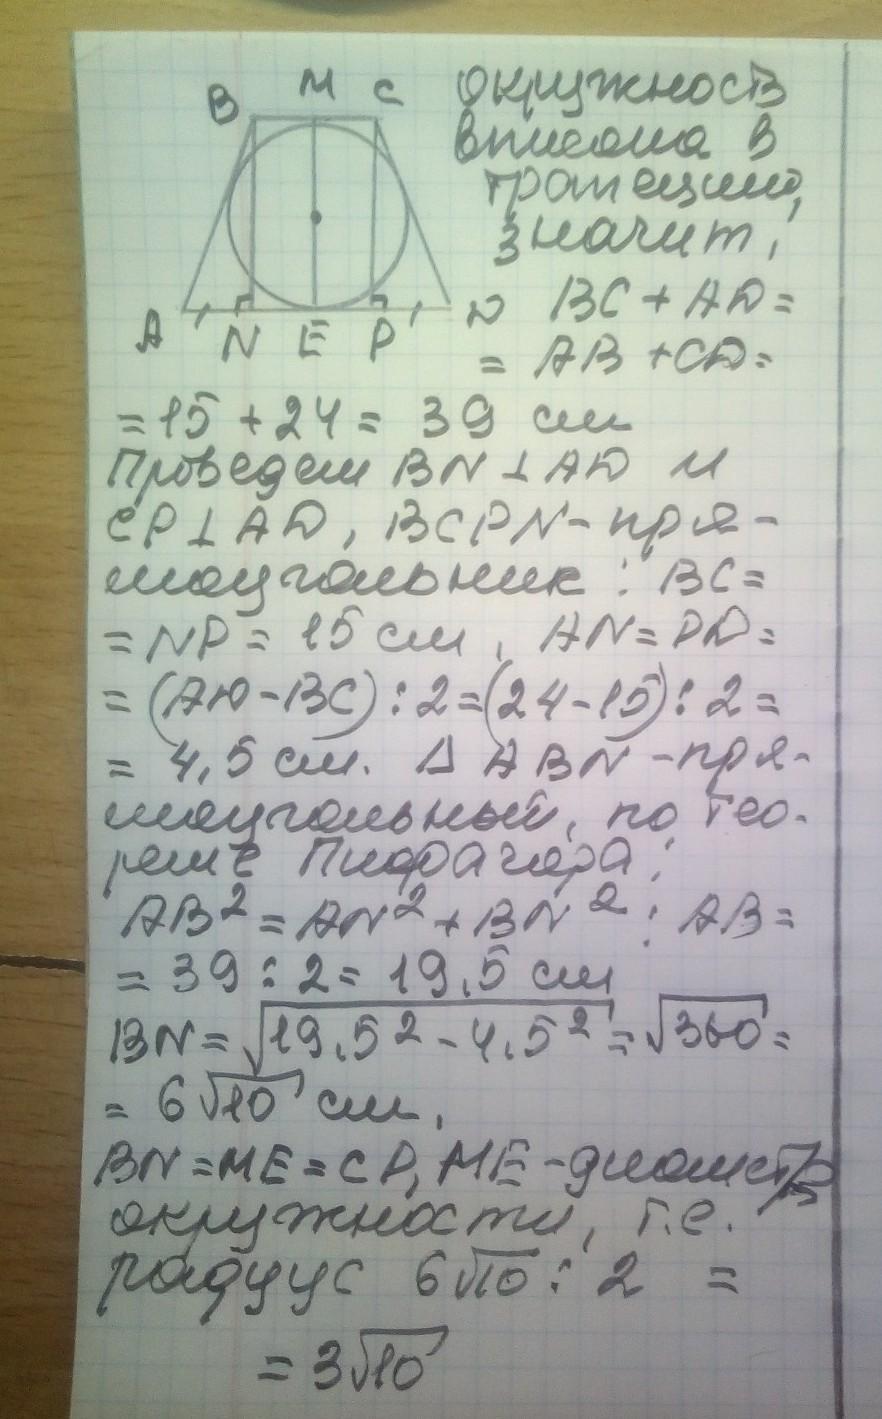 B M C окружность
вписана в
трапецию,
значит,
A N E P D BC + AD =
= AB + CD =
= 15 + 24 = 39 см
Проведем BN ⊥ AD и
CP ⊥ AD, BCPN - пря-
моугольник : BC =
= NP = 15 см, AN = PD =
= (AD - BC) : 2 = (24 - 15) : 2 =
= 4,5 см. Δ ABN - пря-
моугольный, по тео-
реме Пифагора :
AB² = AN² + BN² ; AB =
= 39 : 2 = 19,5 см
BN = √19,5² - 4,5² = √360 =
= 6√10 см,
BN = ME = CP, ME - диаметр
окружности, т.е.
радиус 6√10 : 2 =
= 3√10